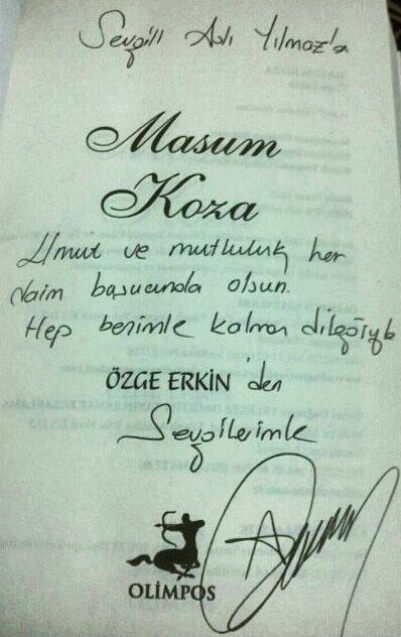 Sevgili Aslı Yılmaz'a
Masum
Koza
Umut ve mutluluk her
daim başucunda olsun.
Hep benimle kalman dileğiyle
ÖZGE ERKİN'den
Sevgilerimle
OLİMPOS